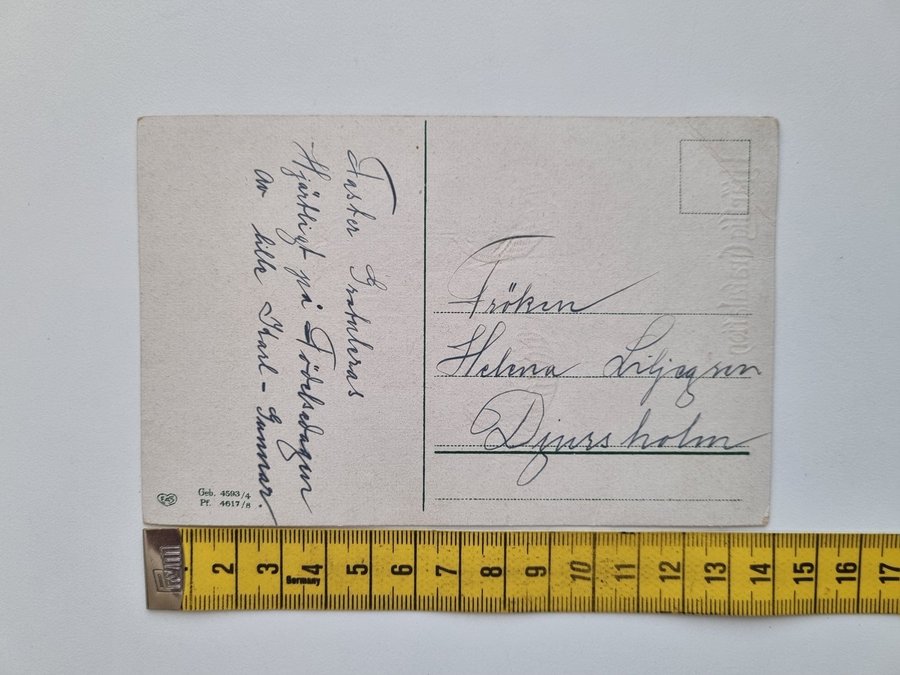 Faster Gratuleras
Hjärtligt på Födelsedagen
av lille Karl-Gunnar.
Fröken
Helena Liljegren
Djursholm
EAS
Geb. 4593/4
Pf. 4617/8
2 3 4 5 6 7 8 9 10 11 12 13 14 15 16 17
Germany